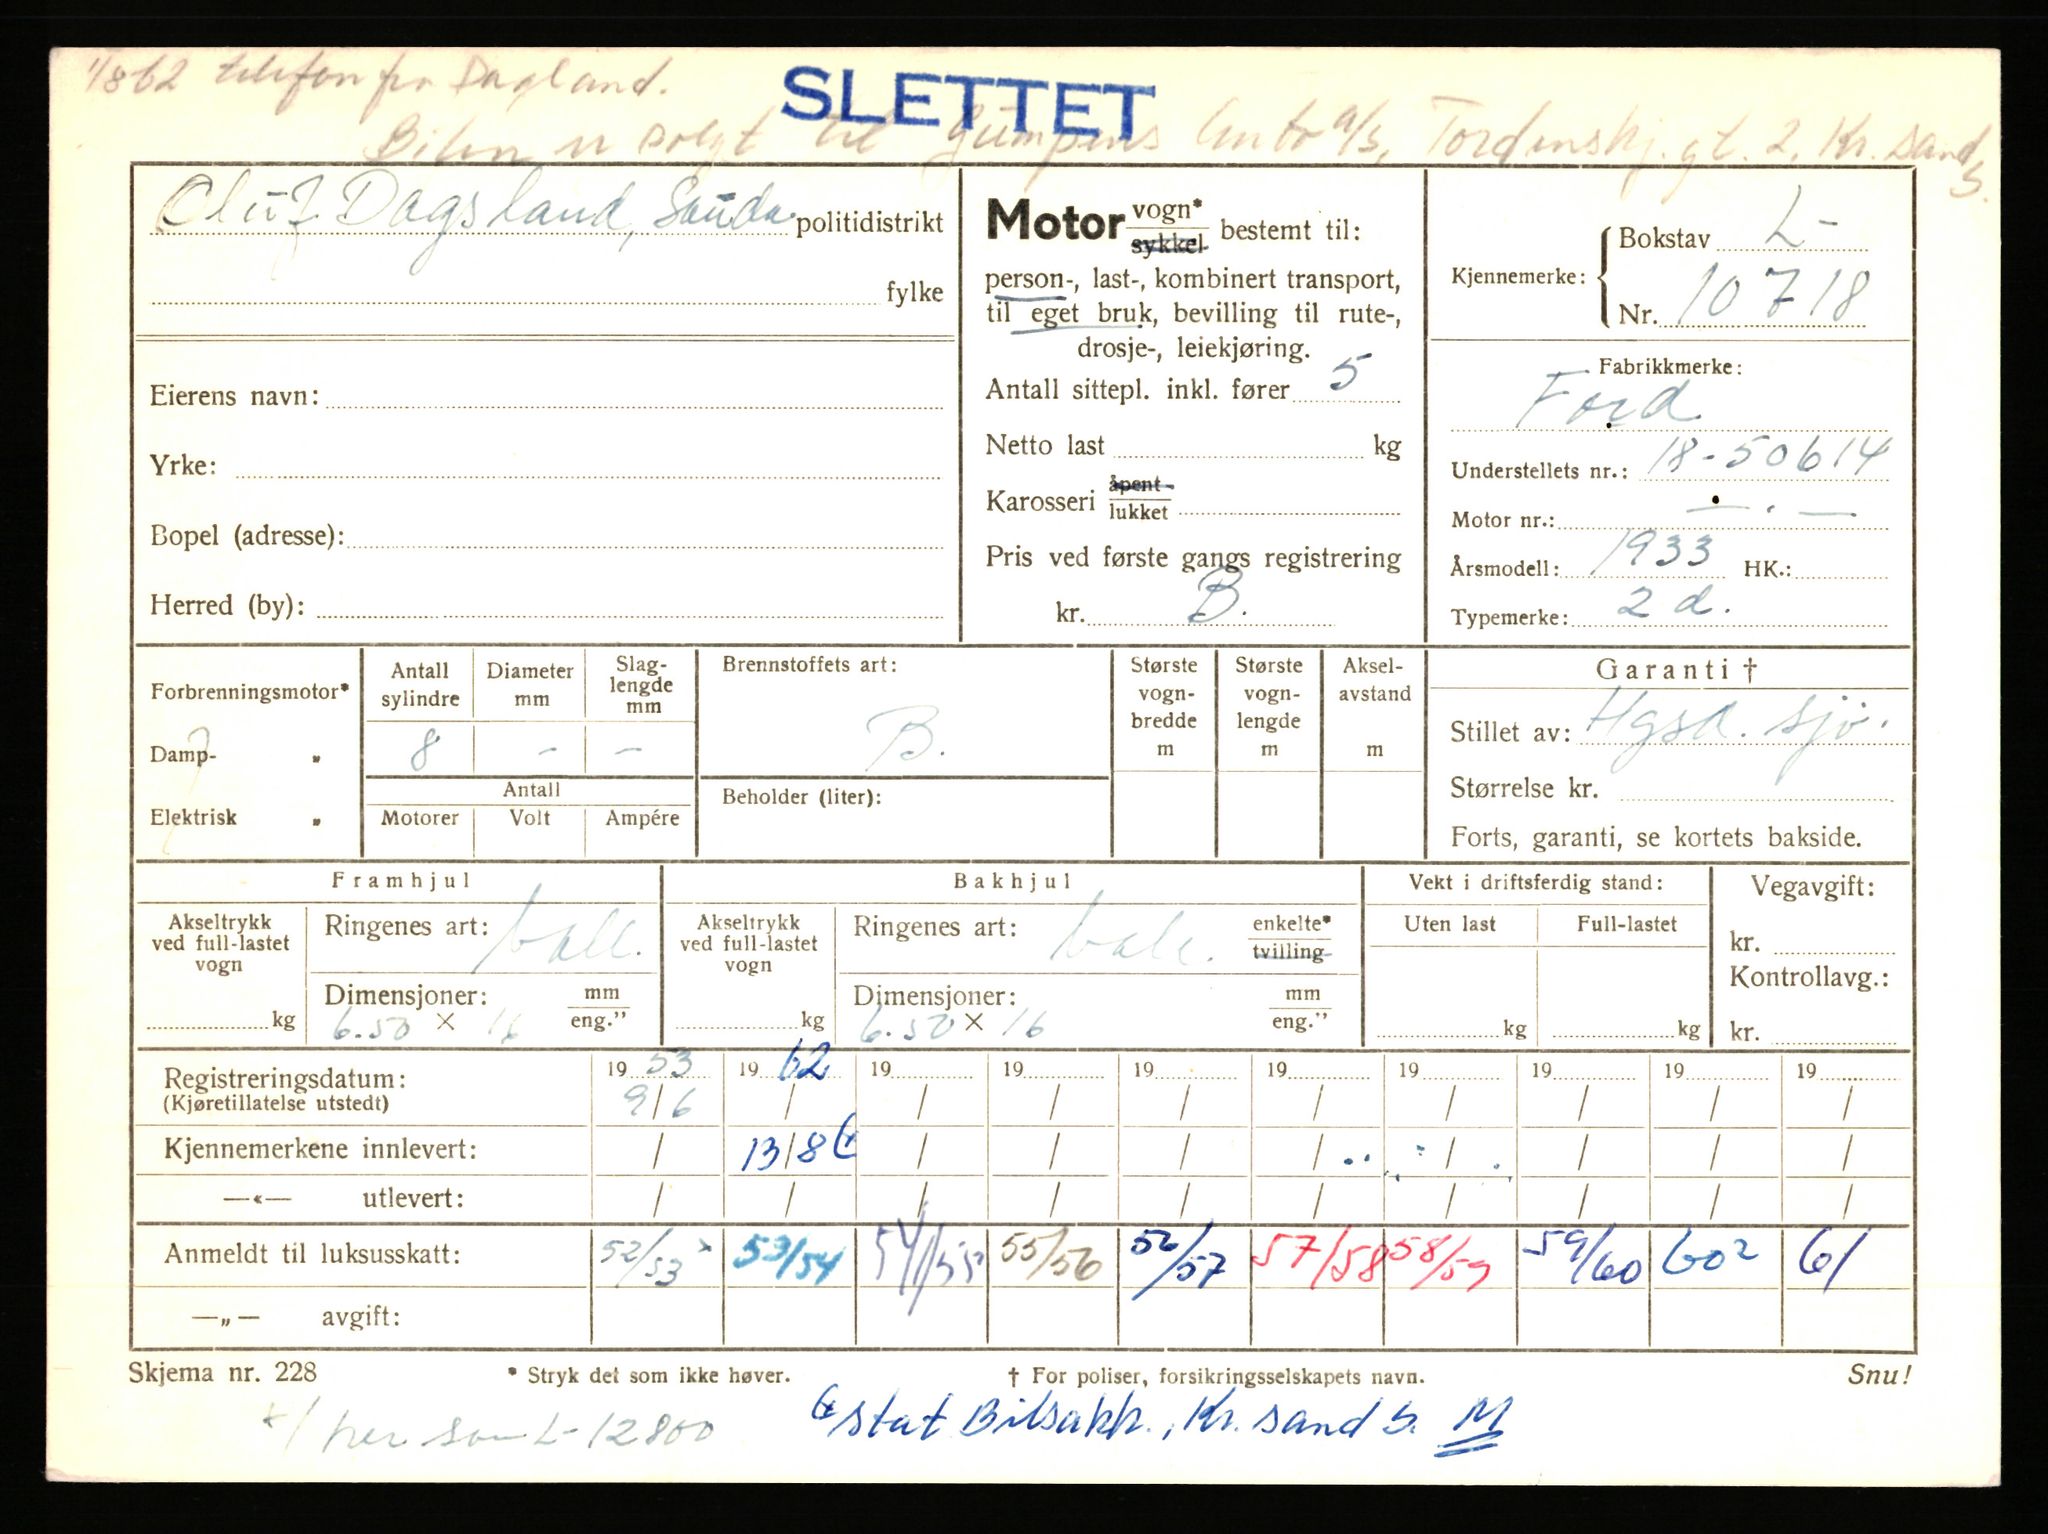 1/8 62 telefon fra Dagsland.
SLETTET
Bilen er solgt til Gumpens Auto a/s, Tordenskj. gt. 2, Kr.sand S.
Oluf Dagsland, Sauda politidistrikt
fylke
Eierens navn:
Yrke:
Bopel (adresse):
Herred (by):
Motor vogn* sykkel bestemt til:
person-, last-, kombinert transport,
til eget bruk, bevilling til rute-,
drosje-, leiekjøring.
Antall sittepl. inkl. fører 5
Netto last kg
Karosseri åpent lukket
Pris ved første gangs registrering
kr. B.
Kjennemerke: Bokstav L-
Nr. 10718
Fabrikkmerke:
Ford
Understellets nr.: 18-50614
Motor nr.: — . —
Årsmodell: 1933 HK.:
Typemerke: 2 d.
Forbrenningsmotor*
Damp- „
Elektrisk „
Antall sylindre
Diameter mm
Slag-lengde mm
8 - -
Antall
Motorer Volt Ampére
Brennstoffets art:
B.
Beholder (liter):
Største vogn-bredde m
Største vogn-lengde m
Aksel-avstand m
Garanti †
Stillet av: Hgsd. sjø.
Størrelse kr.
Forts, garanti, se kortets bakside.
Framhjul
Akseltrykk ved full-lastet vogn
kg
Ringenes art: ball.
Dimensjoner: mm eng.”
6.50 × 16
Bakhjul
Akseltrykk ved full-lastet vogn
kg
Ringenes art: ball. enkelte* tvilling
Dimensjoner: mm eng.”
6.50 × 16
Vekt i driftsferdig stand:
Uten last Full-lastet
kg kg
Vegavgift:
kr.
Kontrollavg.:
kr.
Registreringsdatum: 19 53 19 62 19 19 19 19 19 19 19 19
(Kjøretillatelse utstedt) 9/6 / / / / / / / / /
Kjennemerkene innlevert: / 13/8 / / / / / / / /
—«— utlevert: / / / / / / / / / /
Anmeldt til luksusskatt: 52/53 * 53/54 54/55 55/56 56/57 57/58 58/59 59/60 60² 61
—„— avgift:
Skjema nr. 228 * Stryk det som ikke høver. † For poliser, forsikringsselskapets navn. Snu!
*/ her som L-12800
stat Bilsakk., Kr.sand S. M